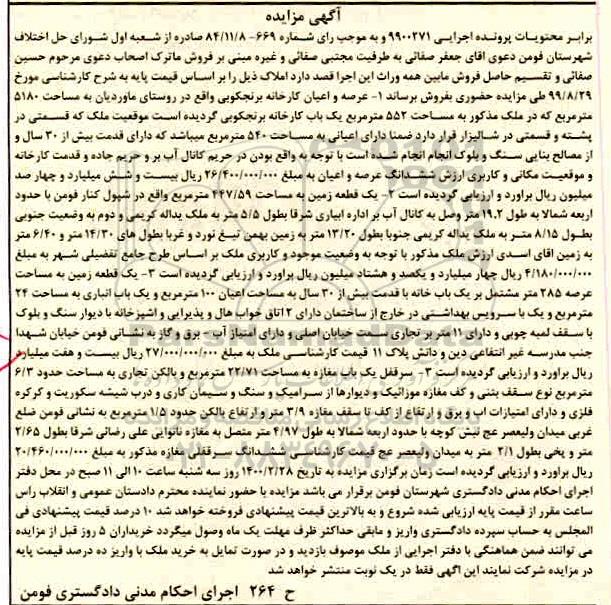 آگهی مزایده
برابر محتویات پرونده اجرایی ۹۹۰۰۲۷۱ و به موجب رای شماره ۶۶۹- ۸۴/۱۱/۸ صادره از شعبه اول شورای حل اختلاف
شهرستان فومن دعوی اقای جعفر صفائی به طرفیت مجتبی صفائی و غیره مبنی بر فروش ماترک اصحاب دعوی مرحوم حسین
صفائی و تقسیم حاصل فروش مابین همه وراث این اجرا قصد دارد املاک ذیل را بر اساس قیمت پایه به شرح کارشناسی مورخ
۹۹/۸/۲۹ طی مزایده حضوری بفروش برساند ۱- عرصه و اعیان کارخانه برنجکوبی واقع در روستای ماوردیان به مساحت ۵۱۸۰
مترمربع که در ملک مذکور به مساحت ۵۵۲ مترمربع یک باب کارخانه برنجکوبی گردیده است موقعیت ملک که قسمتی در
پشته و قسمتی در شالیزار قرار دارد ضمنا دارای اعیانی به مساحت ۵۴۰ مترمربع میباشد که دارای قدمت بیش از ۳۰ سال و
از مصالح بنایی سنگ و بلوک انجام انجام شده است با توجه به واقع بودن در حریم کانال آب بر و حریم جاده و قدمت کارخانه
و موقعیت مکانی و کاربری ارزش ششدانگ عرصه و اعیان به مبلغ ۲۶/۴۰۰/۰۰۰/۰۰۰ ریال بیست و شش میلیارد و چهار صد
میلیون ریال براورد و ارزیابی گردیده است ۲- یک قطعه زمین به مساحت ۴۴۷/۵۹ مترمربع واقع در شهول کنار فومن با حدود
اربعه شمالا به طول ۱۹.۲ متر وصل به کانال آب بر اداره ابیاری شرقا بطول ۵/۵ متر به ملک یداله کریمی و دوم به وضعیت جنوبی
بطول ۸/۱۵ متر به ملک یداله کریمی جنوبا بطول ۱۳/۲۰ متر به زمین بهمن تیغ نورد و غربا بطول های ۱۴/۳۰ متر و ۶/۴۰ متر
به زمین اقای اسدی ارزش ملک مذکور با توجه به وضعیت موجود و کاربری ملک بر اساس طرح جامع تفاضیلی شهر به مبلغ
۴/۱۸۰/۰۰۰/۰۰۰ ریال چهار میلیارد و یکصد و هشتاد میلیون ریال براورد و ارزیابی گردیده است ۳- یک قطعه زمین به مساحت
عرصه ۲۸۵ متر مشتمل بر یک باب خانه با قدمت بیش از ۳۰ سال به مساحت اعیان ۱۰۰ مترمربع و یک باب انباری به مساحت ۲۴
مترمربع و یک با سرویس بهداشتی در خارج از ساختمان دارای ۲ اتاق خواب هال و پذیرایی و اشپزخانه با دیوار سنگ و بلوک
با سقف لمبه چوبی و دارای ۱۱ متر بر تجاری سمت خیابان اصلی و دارای امتیاز آب – برق و گاز به نشانی فومن خیابان شهدا
جنب مدرسه غیر انتفاعی دین و دانش پلاک ۱۱ قیمت کارشناسی ملک به مبلغ ۲۷/۰۰۰/۰۰۰/۰۰۰ ریال بیست و هفت میلیارد
ریال براورد و ارزیابی گردیده است ۳- سرقفل یک باب مغازه به مساحت ۲۲/۷۱ مترمربع و بالکن تجاری به مساحت حدود ۶/۳
مترمربع نوع سقف بتنی و کف مغازه موزائیک و دیوارها از سرامیک و سنگ و سیمان کاری و درب شیشه سکوریت و کرکره
فلزی و دارای امتیازات اب و برق و ارتفاع از کف تا سقف مغازه ۳/۹ متر و ارتفاع بالکن حدود ۱/۵ مترمربع به نشانی فومن ضلع
غربی میدان ولیعصر عج نبش کوچه با حدود اربعه شمالا به طول ۴/۹۷ متر متصل به مغازه نانوایی علی رضائی شرقا بطول ۲/۶۵
متر و پخی بطول ۲/۱ متر به میدان ولیعصر عج قیمت کارشناسی ششدانگ سرقفلی مغازه مذکور به مبلغ ۲۰/۴۶۰/۰۰۰/۰۰۰
ریال براورد و ارزیابی گردیده است زمان برگزاری مزایده به تاریخ ۱۴۰۰/۲/۲۸ روز سه شنبه ساعت ۱۰ الی ۱۱ صبح در محل دفتر
اجرای احکام مدنی دادگستری شهرستان فومن برقرار می باشد مزایده با حضور نماینده محترم دادستان عمومی و انقلاب راس
ساعت مقرر از قیمت پایه ارزیابی شده شروع و به بالاترین قیمت پیشنهادی فروخته خواهد شد ۱۰ درصد قیمت پیشنهادی فی
المجلس به حساب سپرده دادگستری واریز و مابقی حداکثر ظرف مهلت یک ماه وصول میگردد خریداران ۵ روز قبل از مزایده
می توانند ضمن هماهنگی با دفتر اجرایی از ملک موصوف بازدید و در صورت تمایل به خرید ملک با واریز ده درصد قیمت پایه
در مزایده شرکت نمایند این اگهی فقط در یک نوبت منتشر خواهد شد
ح ۲۶۴ اجرای احکام مدنی دادگستری فومن